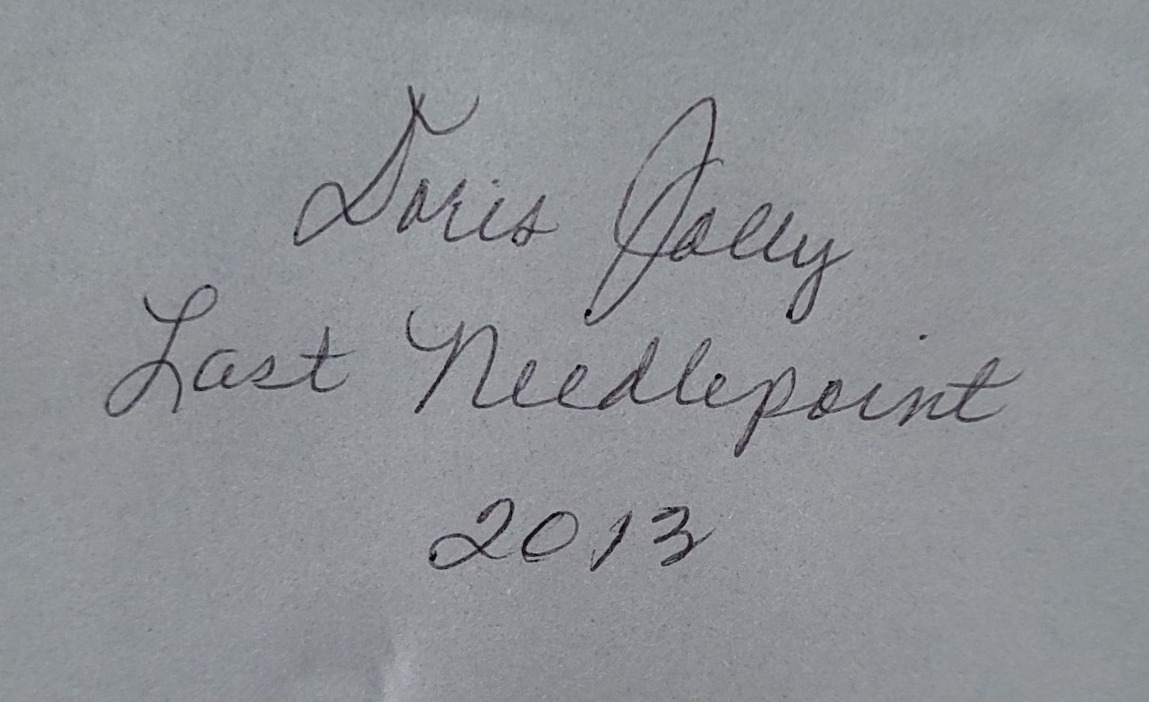 Doris Jolly
Last Needlepoint
2013